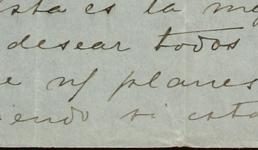 sta es la me
desear todos
e ns planes
iendo si esta